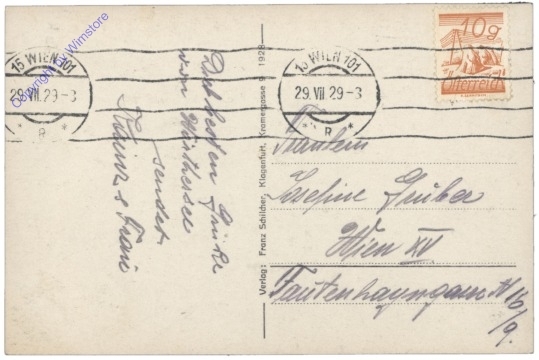 Copyright by Wimstore
15 WIEN 101
29. VII. 29-3
* R *
15 WIEN 101
29. VII. 29-3
* R *
10g
Österreich
Die besten Grüße
vom Wörthersee
sendet
Verlag: Franz Schilcher, Klagenfurt, Kramergasse 9 1928
Fräulein
Josefine Gruber
Wien XV
Tautenhayngasse № 16/9.